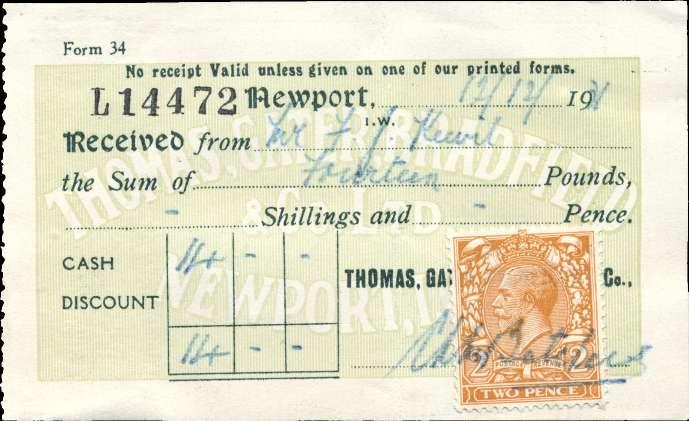 Form 34
No receipt Valid unless given on one of our printed forms.
L14472 Newport, 12/12/ 1931
I.W.
Received from Mr F. J.
the Sum of Fourteen Pounds,
- Shillings and - Pence.
THOMAS, GATER, BRADFIELD
& Co LTD
NEWPORT, I.
CASH 14 - -
DISCOUNT
14 - -
THOMAS, GAT Co.,
POSTAGE REVENUE
2 2
TWO PENCE